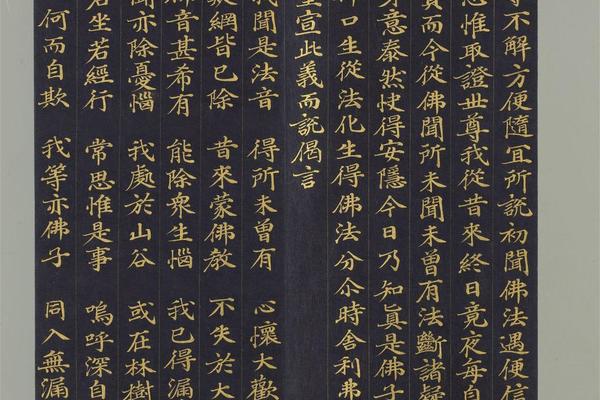 等不解方便隨宜所說初聞佛法遇便信
思惟取證世尊我從昔來終日竟夜每自
責而今從佛聞所未聞未曾有法斷諸疑
身意泰然快得安隱今日乃知真是佛子
佛口生從法化生得佛法分尒時舍利弗
重宣此義而說偈言
我聞是法音 得所未曾有 心懷大歡
疑網皆已除 昔來蒙佛教 不失於大
佛音甚希有 能除衆生惱 我已得漏
聞亦除憂惱 我處於山谷 或在林樹
若坐若經行 常思惟是事 嗚呼深自
何而自欺 我等亦佛子 同入無漏